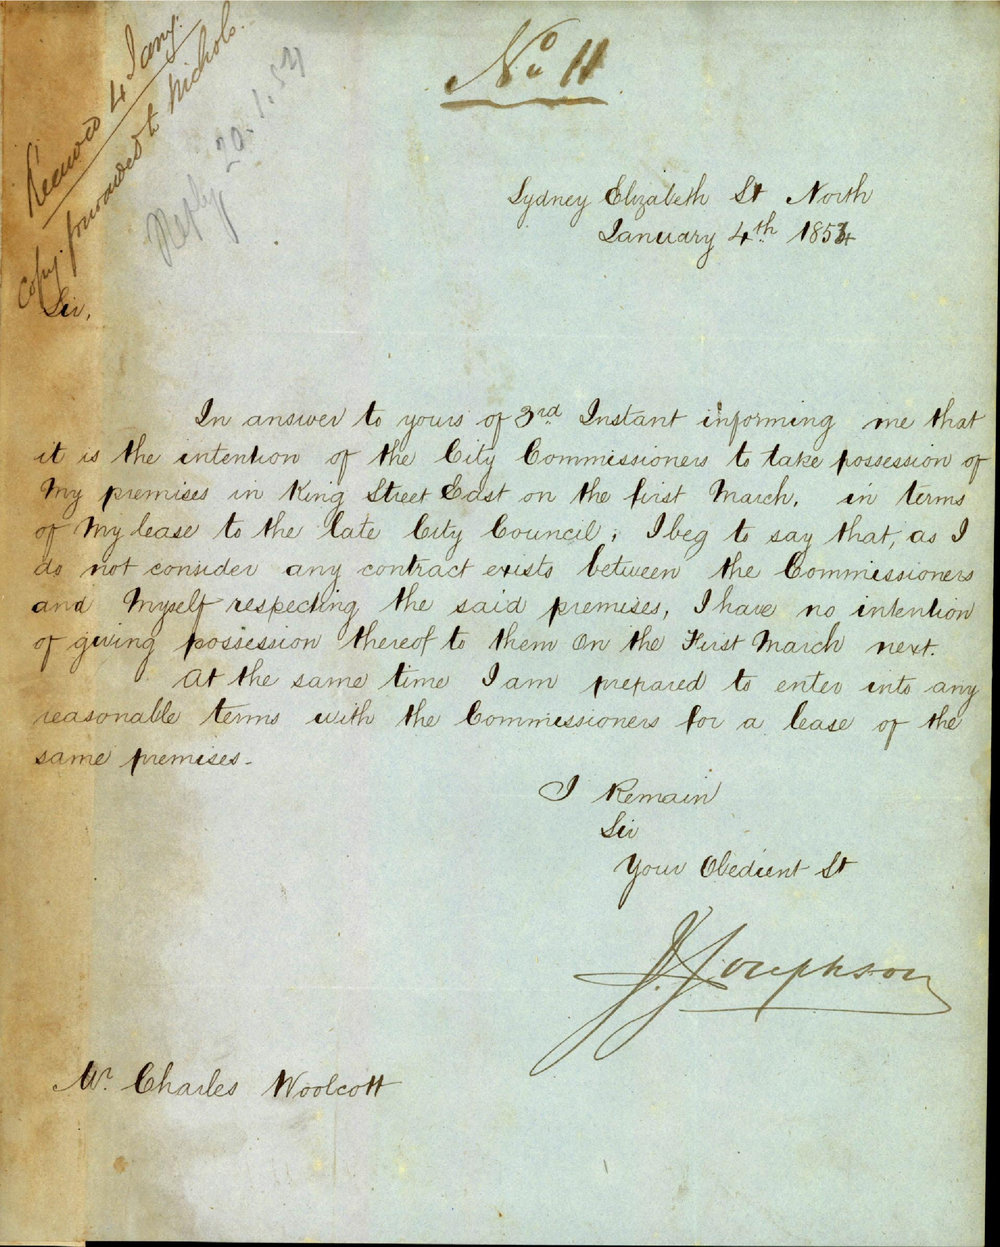 No 11
Received 4 Jany.
Copy forwarded to Nichols.
Reply 20.1.54
Sydney Elizabeth St North
January 4th 1854
Sir,
In answer to yours of 3rd Instant informing me that
it is the intention of the City Commissioners to take possession of
My premises in King Street East on the first March, in terms
of My lease to the late City Council, I beg to say that, as I
do not consider any contract exists between the Commissioners
and Myself respecting the said premises, I have no intention
of giving possession thereof to them On the First March next.
At the same time I am prepared to enter into any
reasonable terms with the Commissioners for a lease of the
same premises.
I Remain
Sir
Your Obedient St
J. Josephson
Mr. Charles Woolcott